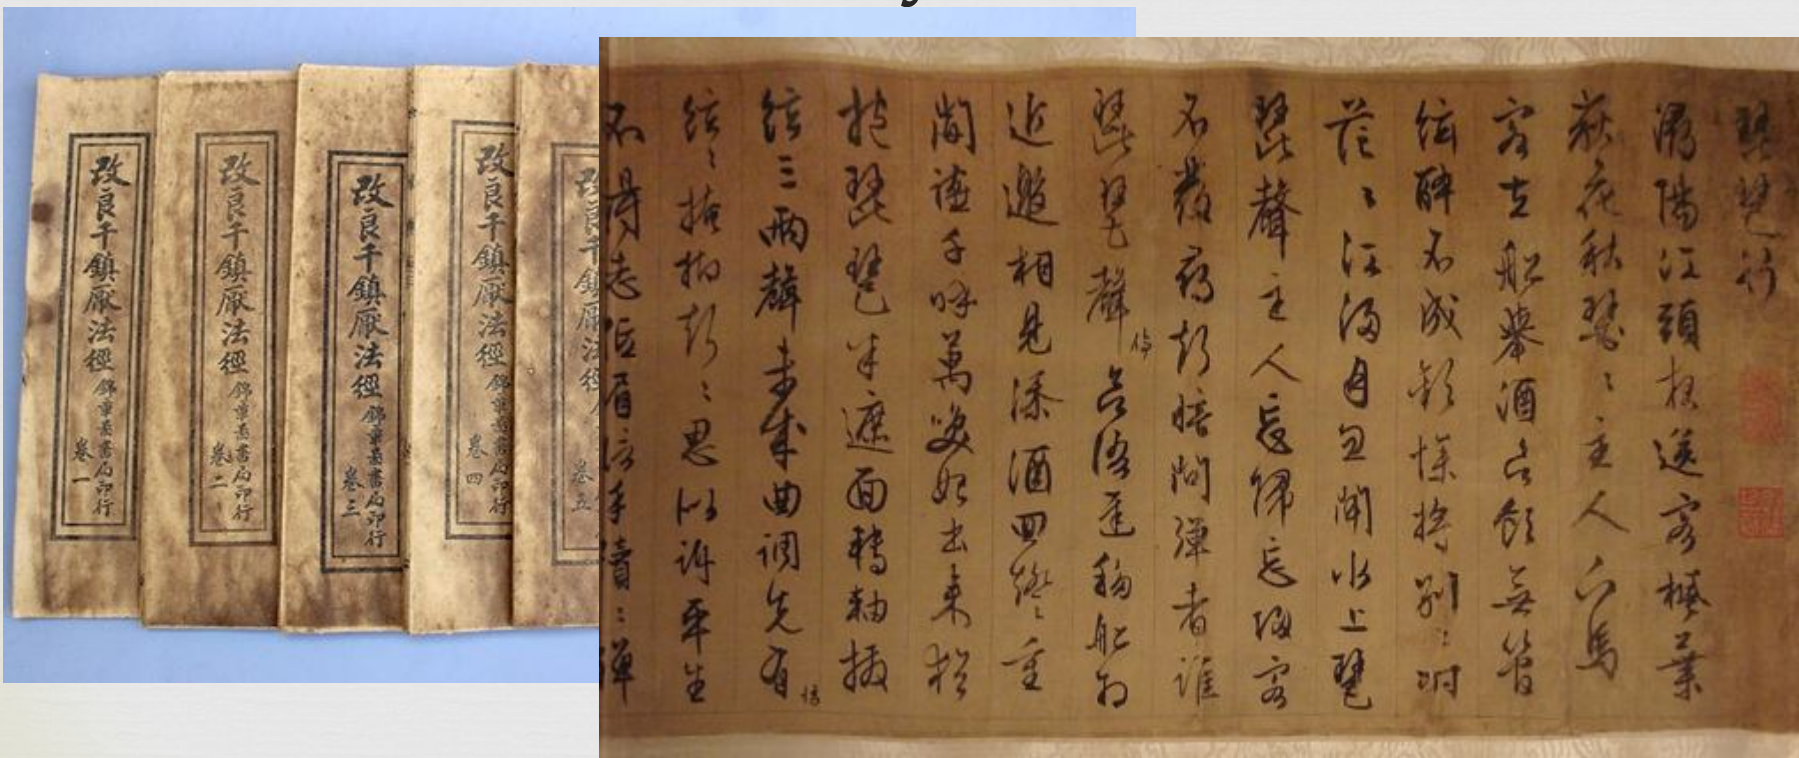 改良千鎮厭法經
錦章圖書局印行
卷一
改良千鎮厭法經
錦章圖書局印行
卷二
改良千鎮厭法經
錦章圖書局印行
卷三
改良千鎮厭法經
錦章圖書局印行
卷四
卷五
琵琶行
潯陽江頭夜送客楓葉
荻花秋瑟々主人下馬
客在船舉酒欲飲無管
絃醉不成歡慘將別々時
茫々江浸月忽聞水上琵
琶聲主人忘歸忘歸客
不發尋聲暗問彈者誰
琵琶聲停欲語遲移船相
近邀相見添酒回燈重
開讌千呼萬喚始出來猶
抱琵琶半遮面轉軸撥
絃三兩聲未成曲調先有情
絃々掩抑聲々思似訴平生
不得志低眉信手續々彈